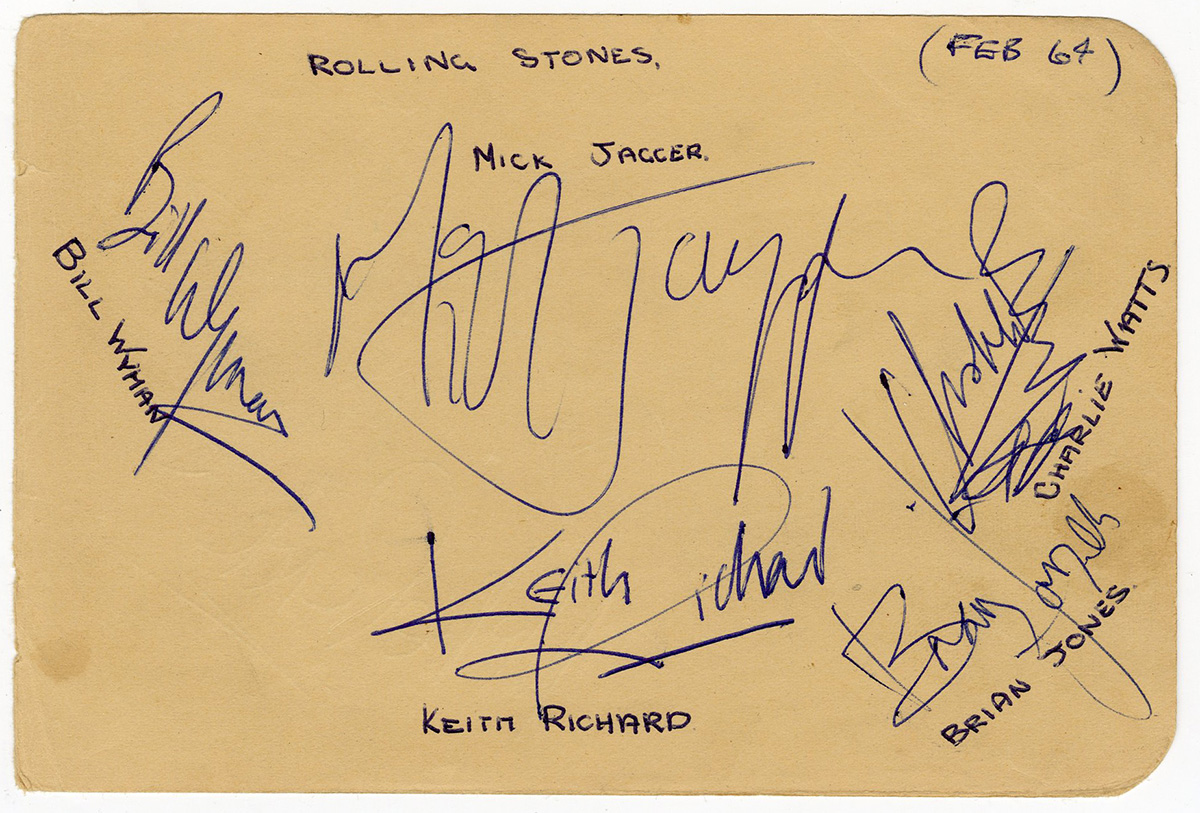 ROLLING STONES.
(FEB 64)
MICK JAGGER.
Mick Jagger
Bill Wyman
BILL WYMAN
Charlie Watts
CHARLIE WATTS
Keith Richard
KEITH RICHARD
Brian Jones
BRIAN JONES